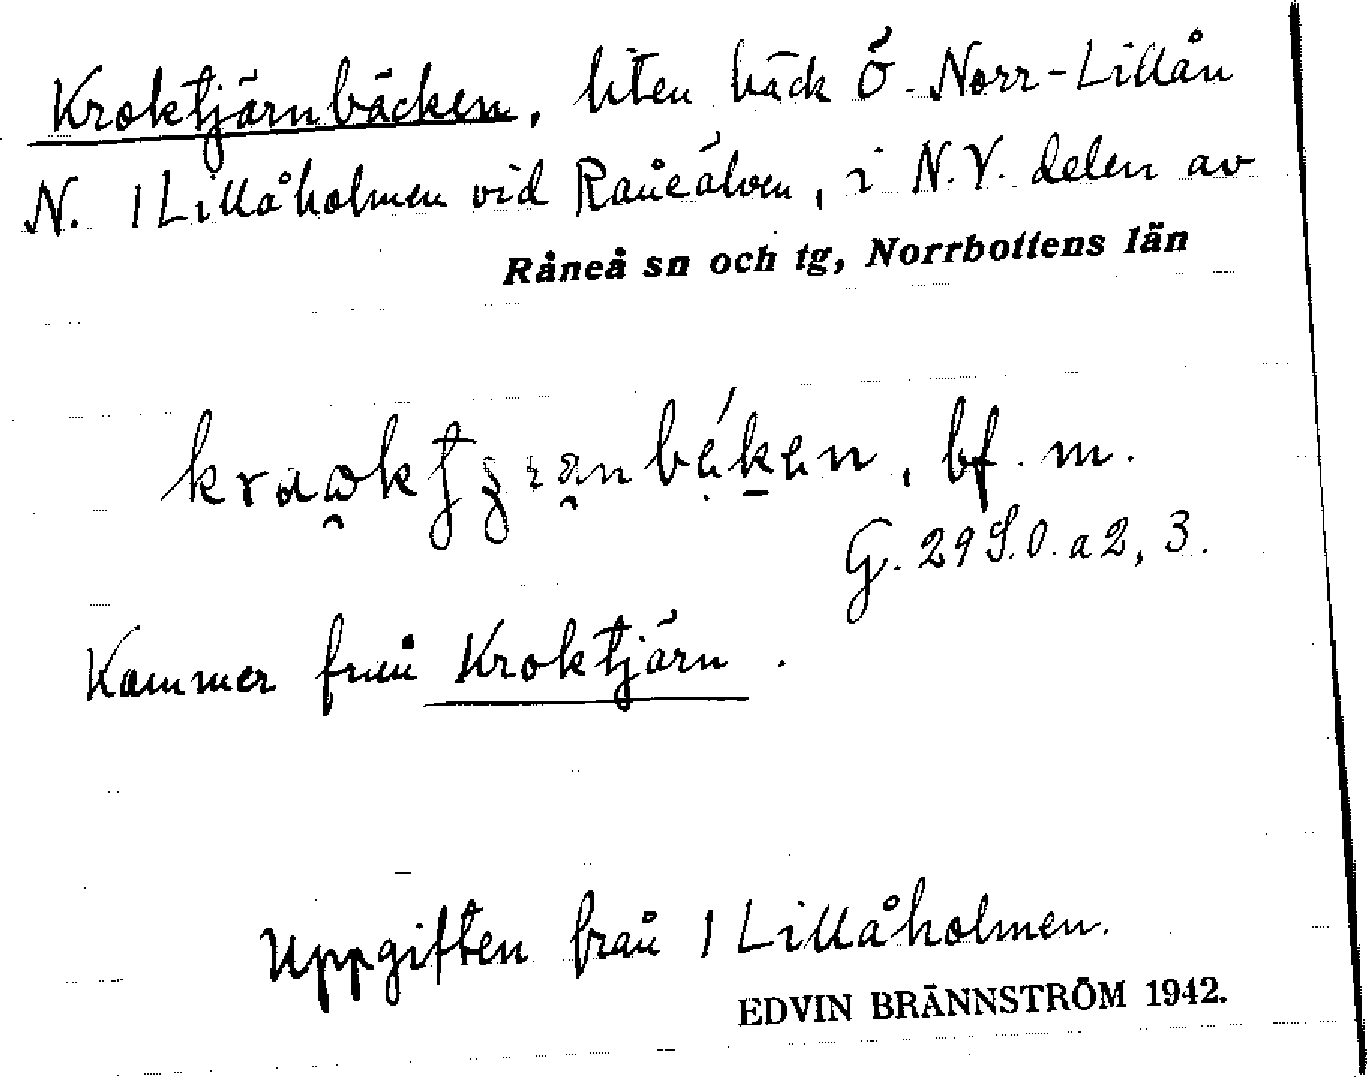 Kroktjärnbäcken, liten bäck Ö. Norr-Lillån
N. 1 Lillåholmen vid Råneälven, i N.V. delen av
Råneå sn och tg, Norrbottens län
bf. m.
G. 29 S.O. a 2, 3.
Kommer från Kroktjärn.
Uppgiften från 1 Lillåholmen.
EDVIN BRÄNNSTRÖM 1942.